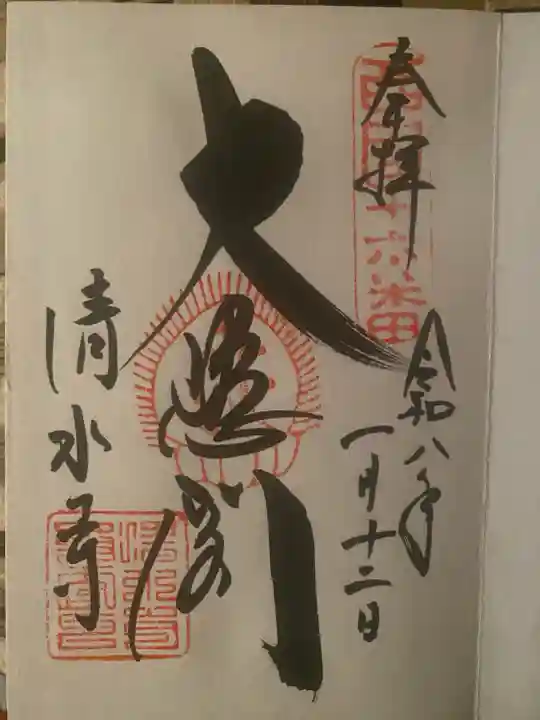 奉拝
西国十六番
令和八年
一月十二日
大悲閣
清水寺